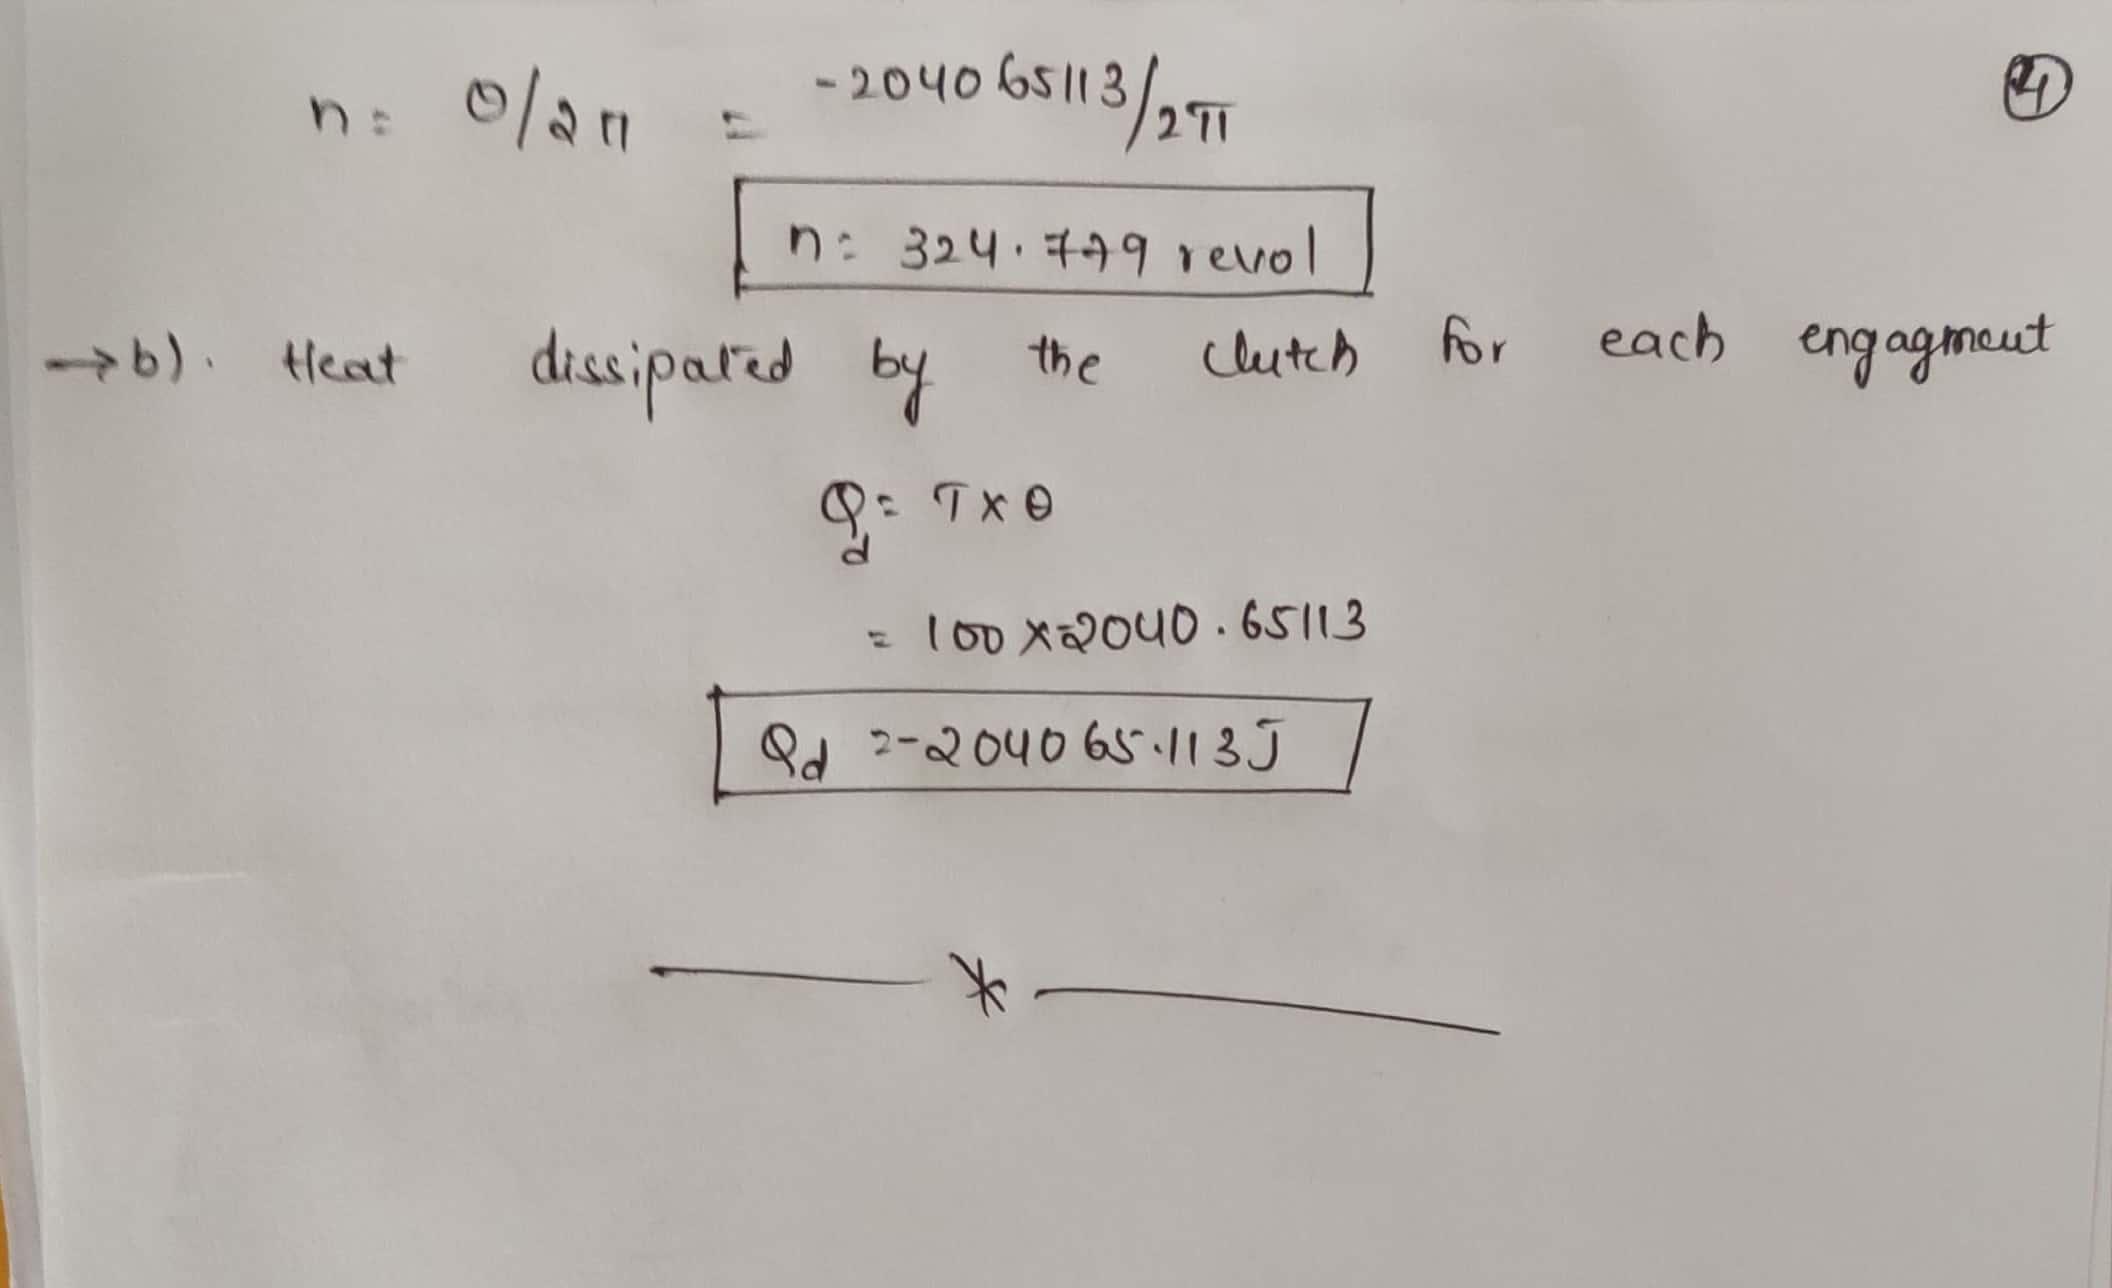 n = θ/2π = -204065113/2π
④
n = 324.779 revol
→ b). Heat dissipated by the clutch for each engagment
Qd = T x θ
= 100 x -2040.65113
Qd = -204065.113J
*